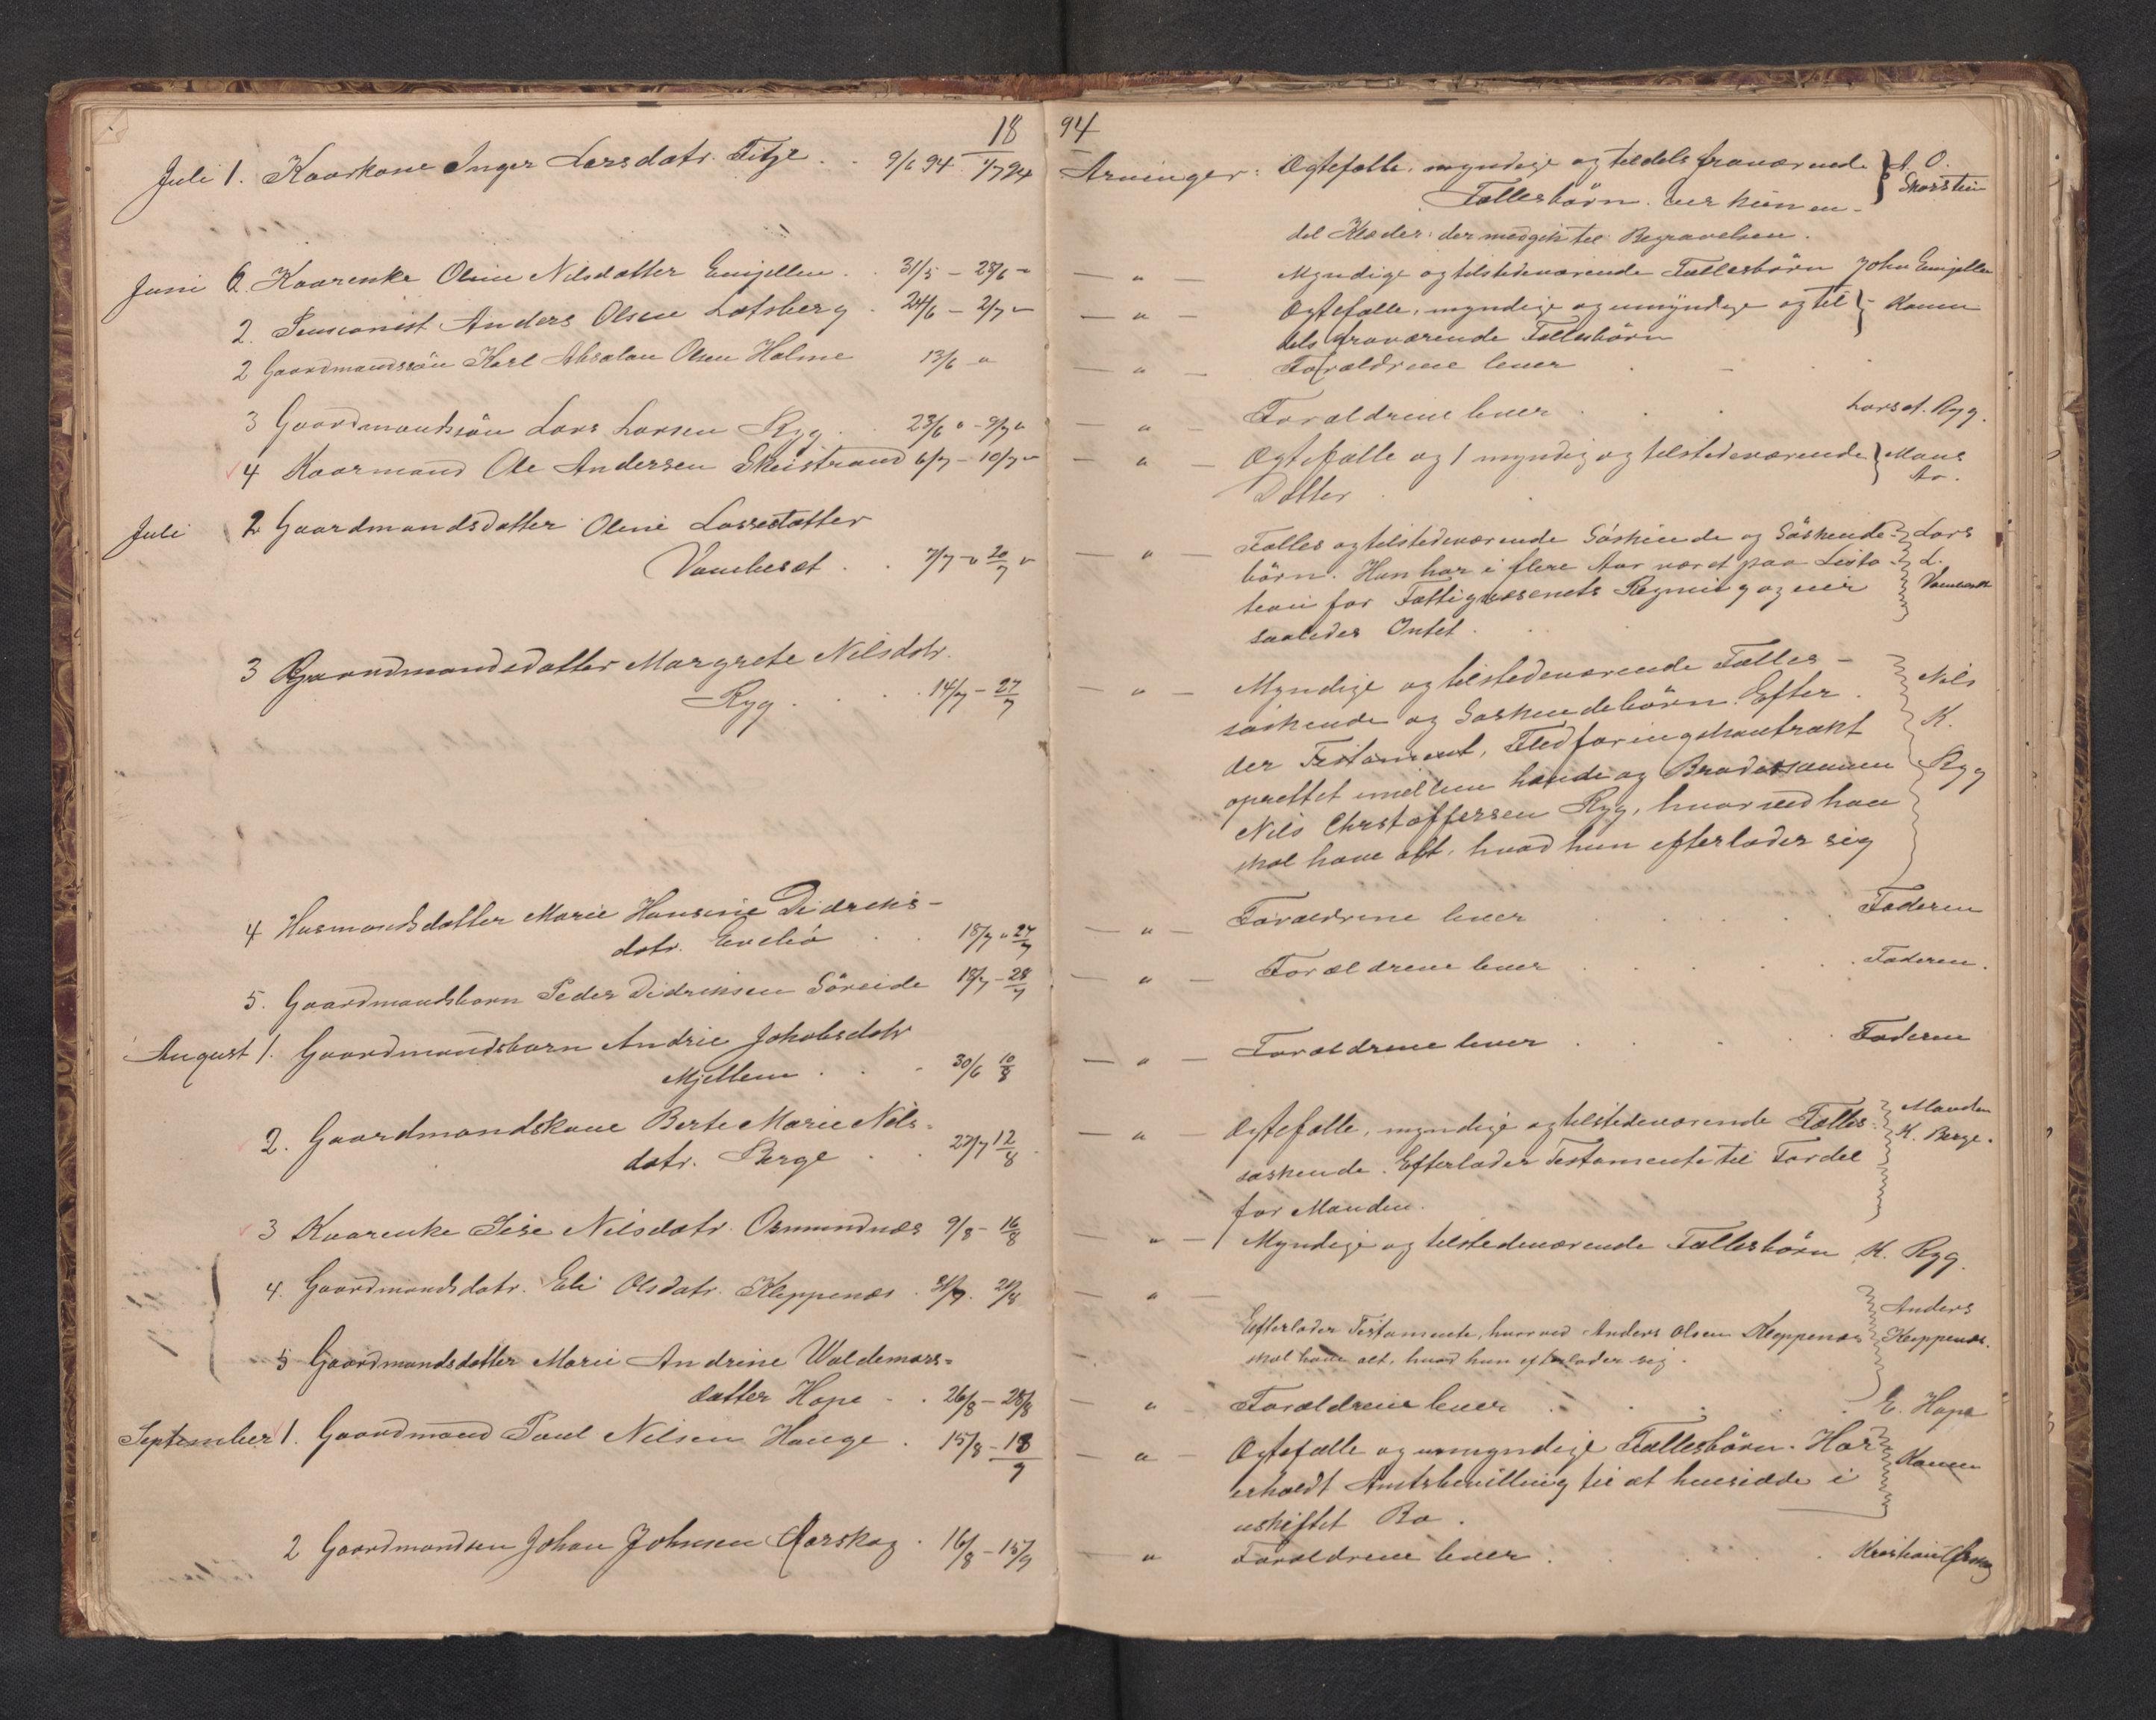 18 94
Juli 1. Kaarkone Inger Larsdatr. Fitje . . 9/6 94 1/7 94
Juni 6. Kaarenke Oline Nilsdatter Emjellen . . 31/5 – 28/6 "
2. Pensionist Anders Olsen Lotsberg . 24/6 – 2/7 "
2 Gaardmandssön Karl Absalon Olsen Holme 13/6 "
3 Gaardmandssön Lars Larsen Ryg . . 23/6 " – 9/7 "
4 Kaarmand Ole Andersen Skeistrand 6/7 – 10/7 "
Juli 2 Gaardmandsdatter Oline Lassesdatter
Vambeset . . 7/7 – " 20/7 "
3 Gaardmandsdatter Margrete Nilsdtr.
Ryg . . . 14/7 – 27/7
4 Husmandsdatter Marie Hansine Didriks-
datr. Evebö . . 18/7 " 27/7
5. Gaardmandsbarn Peder Didriksen Söreide 18/7 – 28/7
August 1. Gaardmandsbarn Andrie Jakobsdatr
Mjellem . . . 30/6 10/8
2. Gaardmandskone Berte Marie Nils-
datr. Berge . . 27/7 12/8
3 Kaarenke Sise Nilsdatr. Osmundnæs 9/8 – 16/8
4. Gaardmandsdatr. Eli Olsdatr. Kleppenæs . 31/7. 21/8
5 Gaardmandsdatter Marie Andrine Waldemars-
datter Hope . . 26/8 – 28/8
September 1. Gaardmand Paul Nilsen Hauge . 15/8 – 13/9
2 Gaardmandsen Johan Johnsen Aarskog . 16/8 – 15/9
Arvinger: Ægtefælle, myndige og tildels fraværende } A. O.
Fællesbörn. Eier kun en Skorstein
del Klæder: der medgik til Begravelsen.
— " — Myndige og tilstedeværende Fællesbörn John Emjellen
— " — Ægtefælle, myndige og umyndige og til- } Konen
dels fraværende Fællesbörn
— " — Forældrene lever . - .
— " — Forældrene lever . . . Lars A. Ryg.
— " — Ægtefælle og 1 myndig og tilstedeværende } Mons
Datter . . Ao.
— " — Fælles og tilstedeværende Söskende og Söskende- Lars
börn. Hun har i flere Aar været paa L.
for Fattigvæsenets Regning og eier
saaledes Intet.
— " — Myndige og tilstedeværende Fælles- Nils
söskende og Söskendebörn. Efter- K.
der Testament, Flædföringskontrakt Ryg
oprettet imellem hende og Brodersönnen
Nils Christoffersen Ryg, hvorved han
skal have alt, hvad hun efterlader sig
— " — Forældrene lever . . . . Faderen
— " — Forældrene lever . . . . Faderen.
— " — Forældrene lever . . . Faderen
— " — Ægtefælle, myndige og tilstedeværende Fælles- Manden
söskende. Efterlader Testamente til Fordel K. Berge.
for Manden.
— " — Myndige og tilstedeværende Fællesbörn K. Ryg.
— " — Efterlader Testamente, hvorved Anders Olsen Kleppenæs Anders
skal have alt, hvad hun efterlader sig. Kleppenæs.
— " — Forældrene lever . . . . E. Hope
— " — Ægtefælle og umyndige Fællesbörn. Har Konen
erholdt Amtsbevilling til at hensidde i
uskiftet Bo.
— " Forældrene lever . . . Kristian Aarskog